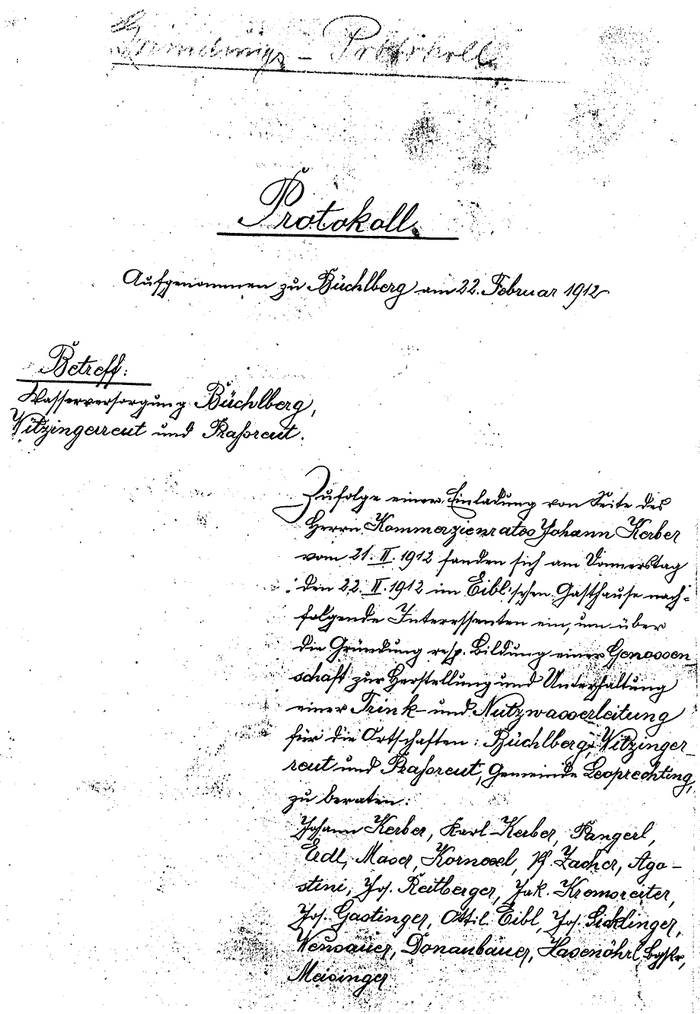 Gründungs-Protokoll
Protokoll.
Aufgenommen zu Büchlberg am 22. Februar 1912
Betreff:
Wasserversorgung Büchlberg,
Witzingerreut und Praßreut.
Zufolge einer Einladung von Seite des
Herrn Kommerzienrates Johann Kerber
vom 21. II. 1912 fanden sich am Donnerstag
den 22. II. 1912 im Eibl'schen Gasthause nach-
folgende Interessenten ein, um über
die Gründung resp. Bildung einer Genossen-
schaft zur Herstellung und Unterhaltung
einer Trink- und Nutzwasserleitung
für die Ortschaften: Büchlberg, Witzinger-
reut und Praßreut, Gemeinde Leoprechting,
zu beraten:
Johann Kerber, Karl Kerber, Pangerl,
Erdl, Maser, Kornexl, Zacher, Ago-
stini, Jos. Reitberger, Jak. Kremsreiter,
Jos. Gastinger, Eibl, Jos. Sicklinger,
Wensauer, Donaubauer, Hasenöhrl,
Meisinger